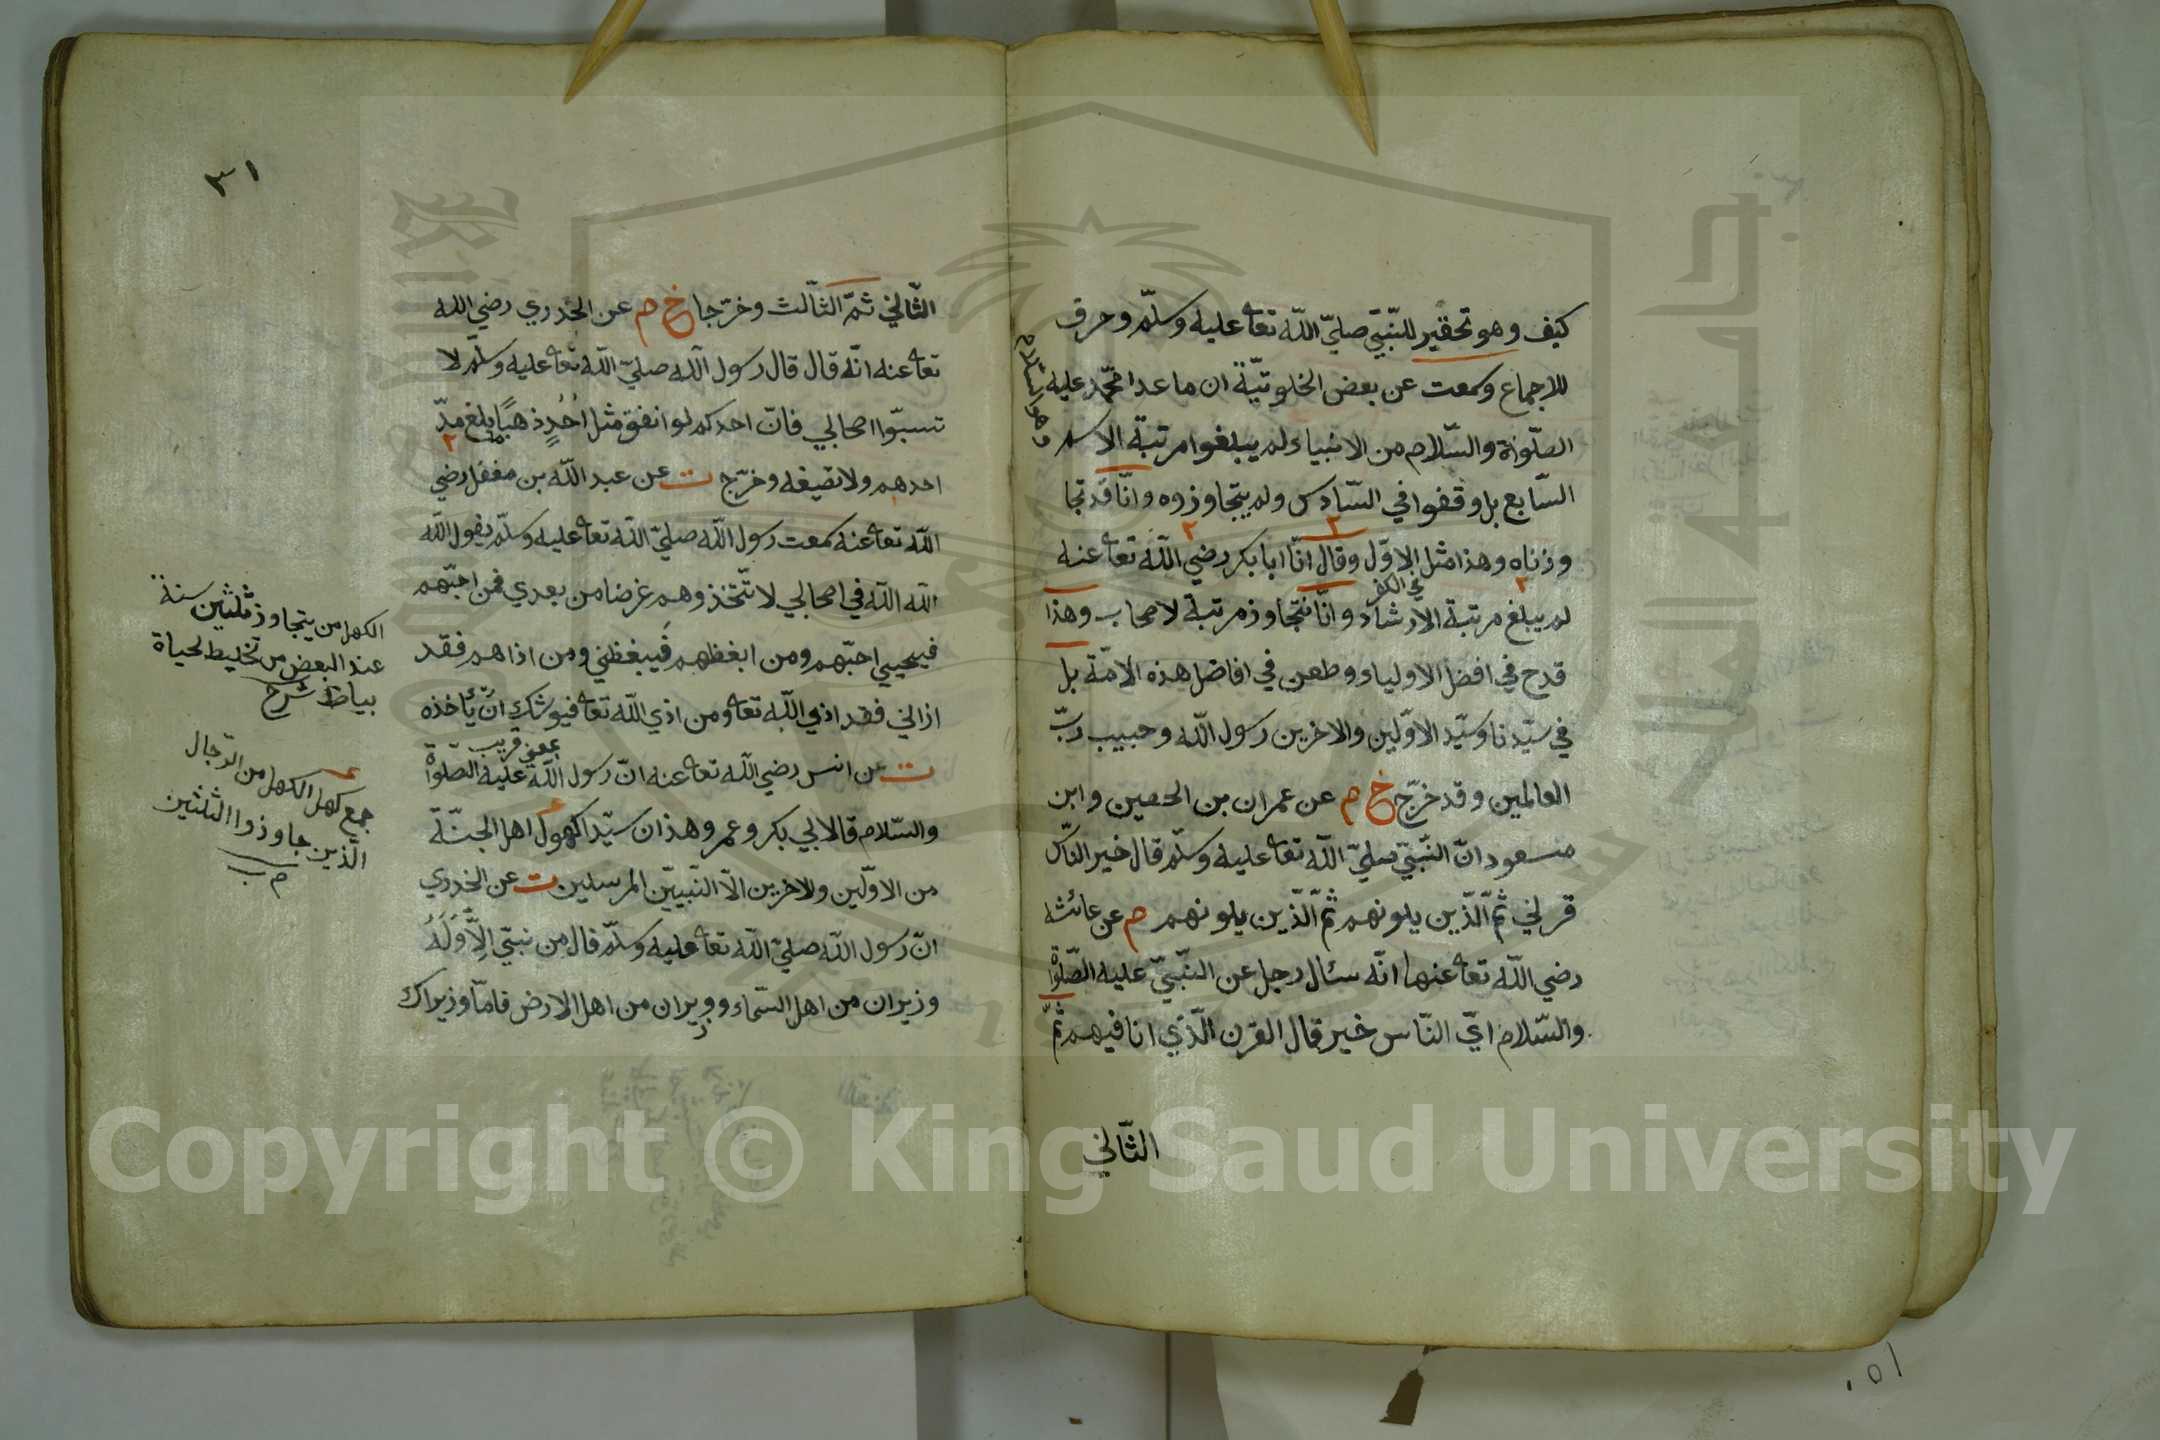 كيف وهو تحقير للنّبيّ صلّي اللّه تعا عليه وسلّم وخرق
للاجماع وسمعت عن بعض الخلوتيّة ان ما عدا محمّد عليه
الصّلوة والسّلام من الانبياء لم يبلغوا مرتبة الاسم
وهو استلام
السّابع بل وقفوا في السّادس ولم يتجاوزوه وانّا قد تجا
وزناه وهذا مثل الاوّل وقال انّا ابا بكر رضي اللّه تعا عنه
في الكفر
لم يبلغ مرتبة الارشاد وانّا نتجاوز مرتبة لاصحاب وهذا
قدح في افضل الاولياء وطعن في افاضل هذه الامّة بل
في سيّدنا وسيّد الاوّلين والاخرين رسول اللّه وحبيب ربّ
العالمين وقد خرّج خ م عن عمران بن الحصين وابن
مسعود انّ النّبيّ صلّي اللّه تعا عليه وسلّم قال خير النّاس
قرني ثمّ الّذين يلونهم ثمّ الّذين يلونهم م عن عائشه
رضي اللّه تعا عنها انّه سئال رجل عن النّبيّ عليه الصّلوة
والسّلام ايّ النّاس خير قال القرن الّذي انا فيهم ثمّ
الثّاني
٣١
الثّاني ثمّ الثّالث وخرّجا خ م عن الخدري رضي اللّه
تعا عنه انّه قال قال رسول اللّه صلّي اللّه تعا عليه وسلّم لا
تسبّوا اصحابي فانّ احدكم لو انفق مثل اُحُدٍ ذهبًا بلغ مدّ
احدهم ولا نصيفه وخرّج ت عن عبد اللّه بن مغفل رضي
اللّه تعا عنه سمعت رسول اللّه صلّي اللّه تعا عليه وسلّم يقول اللّه
اللّه اللّه في اصحابي لا تتّخذوهم غرضا من بعدي فمن احبّهم
فبحبي احبّهم ومن ابغظهم فيبغظني ومن اذاهم فقد
اذاني فقد اذي اللّه تعا ومن اذي اللّه تعا فيوشك انّ يأخذه
بمعني قريب
ت عن انس رضي اللّه تعا عنه انّ رسول اللّه عليه الصّلوة
والسّلام قال لابي بكر وعمر وهذان سيّدا كهول اهل الجنّة
من الاوّلين وللاخرين الّا النّبيّين المرسلين ت عن الخدري
انّ رسول اللّه صلّي اللّه تعا عليه وسلّم قال من نبيّ اِلّا وَلَهُ
وزيران من اهل السّماء ووزيران من اهل الارض فامّا وزيراك
الكهل من يتجاوز ثلثين سنة
عند البعض من تخليط لحياة
بياظ شرح
جمع كهل الكهل من الرّجال
الّذين جاوزوا الثلثين
م ب
١٥١
Copyright © King Saud University